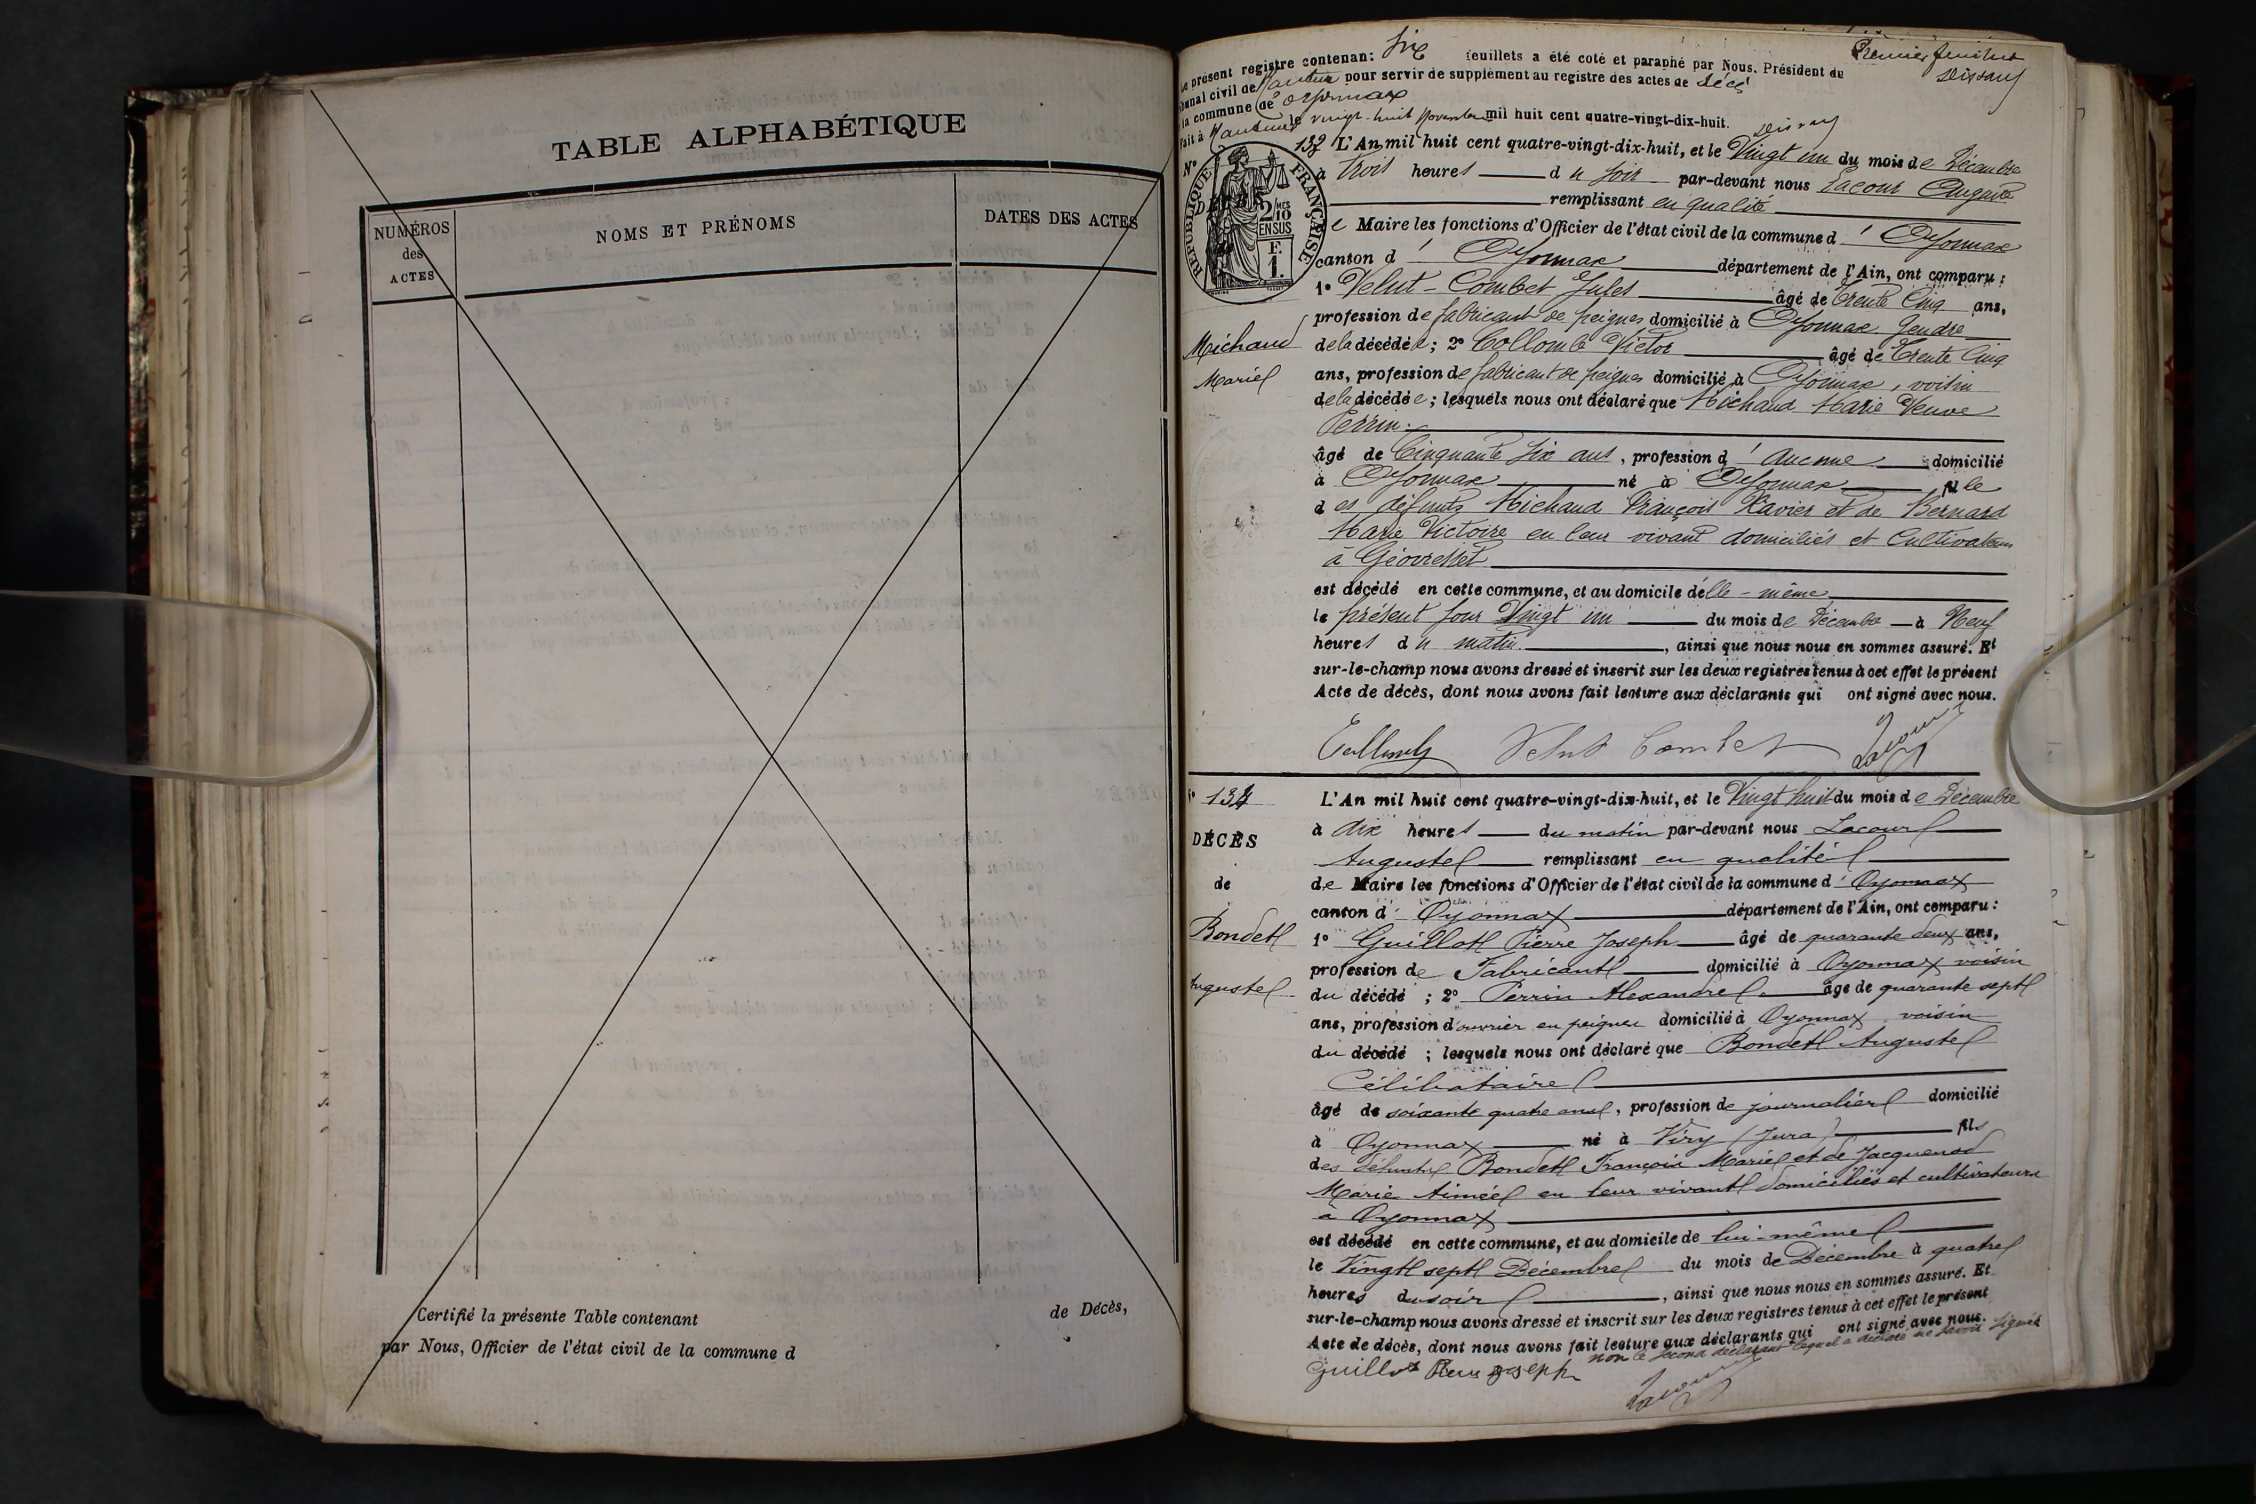 TABLE ALPHABÉTIQUE
NUMÉROS
des
ACTES
NOMS ET PRÉNOMS
DATES DES ACTES
Certifié la présente Table contenant de Décès,
par Nous, Officier de l'état civil de la commune d
Premier feuillet
Le présent registre contenan: six feuillets a été coté et paraphé par Nous, Président du
Tribunal civil de Nantua pour servir de supplément au registre des actes de décès
la commune de Oyonnax
Fait à Nantua le vingt-huit Novembre mil huit cent quatre-vingt-dix-huit.
No 133 L'An mil huit cent quatre-vingt-dix-huit, et le Vingt un du mois de Décembre
à trois heures du soir par-devant nous Lacour Auguste
remplissant en qualité
RÉPUBLIQUE FRANÇAISE
2/10 EN SUS
F. 1.
DÉCÈS
e Maire les fonctions d'Officier de l'état civil de la commune d' Oyonnax
canton d' Oyonnax département de l'Ain, ont comparu:
1o Velut-Combet Jules âgé de trente cinq ans,
profession de fabricant de peignes domicilié à Oyonnax Gendre
Michaud
Marie
de la décédée; 2o Collomb Victor âgé de trente cinq
ans, profession de fabricant de peignes domicilié à Oyonnax, voisin
de la décédée; lesquels nous ont déclaré que Michaud Marie Veuve
Perrin.
âgé de Cinquante six ans, profession d' aucune domicilié
à Oyonnax né à Oyonnax fille
des défunts Michaud François Xavier et de Bernard
Marie Victoire en leur vivant domiciliés et Cultivateurs
à Géovresset
est décédé en cette commune, et au domicile d'elle-même
le présent jour Vingt un du mois de Décembre à Neuf
heures du matin, ainsi que nous nous en sommes assuré. Et
sur-le-champ nous avons dressé et inscrit sur les deux registres tenus à cet effet le présent
Acte de décès, dont nous avons fait lecture aux déclarants qui ont signé avec nous.
Collomb Velut Combet Lacour
No 134 L'An mil huit cent quatre-vingt-dix-huit, et le Vingt huit du mois de Décembre
DÉCÈS
de
Bondet
Auguste
à dix heures du matin par-devant nous Lacour
Auguste remplissant en qualité
de Maire les fonctions d'Officier de l'état civil de la commune d' Oyonnax
canton d' Oyonnax département de l'Ain, ont comparu:
1o Guillot Pierre Joseph âgé de quarante deux ans,
profession de Fabricant domicilié à Oyonnax voisin
du décédé; 2o Perrin Alexandre âgé de quarante sept
ans, profession d'ouvrier en peignes domicilié à Oyonnax voisin
du décédé; lesquels nous ont déclaré que Bondet Auguste
Célibataire
âgé de soixante quatre ans, profession de journalier domicilié
à Oyonnax né à Viry (Jura) fils
des défunts Bondet François Marie et de Jacquenod
Marie Aimée en leur vivant domiciliés et cultivateurs
à Oyonnax
est décédé en cette commune, et au domicile de lui-même
le Vingt sept Décembre du mois de Décembre à quatre
heures du soir, ainsi que nous nous en sommes assuré. Et
sur-le-champ nous avons dressé et inscrit sur les deux registres tenus à cet effet le présent
Acte de décès, dont nous avons fait lecture aux déclarants qui ont signé avec nous.
non le second déclarant lequel a déclaré ne savoir signer
Guillot Pierre Joseph
Lacour